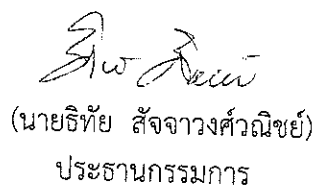 (นายธิทัย สัจจาวงศ์วณิชย์)
ประธานกรรมการ